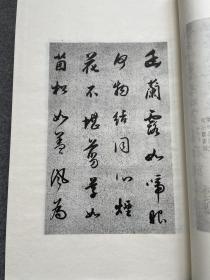 幽蘭露如啼眼
無物結同心煙
花不堪剪草如
茵松如蓋風為